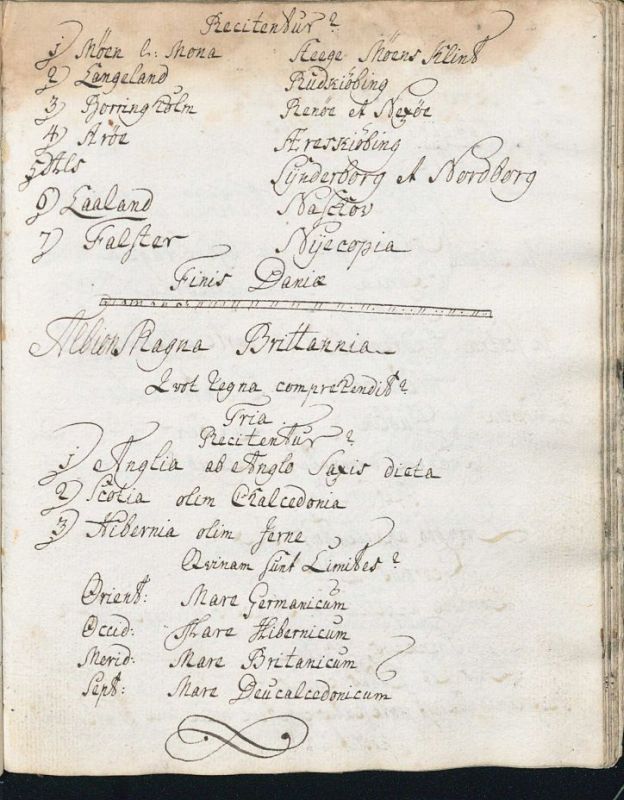 Recitentur?
1) Möen l: Mona Steege Möens Klint
2 Langeland Rudkiöbing
3) Borringholm Renöe et Nexöe
4) Aröe Æreskiöbing
5) Als Synderborg et Nordborg
6) Laaland Naskov
7) Falster Nyecopia
Finis Daniæ
Albion Magna Brittannia
Qvot regna comprehendit?
Tria
Recitentur?
1) Anglia ab Anglo Saxis dicta
2) Scotia olim Chalcedonia
3) Hibernia olim Jerne
Qvinam sunt Limites?
Orient: Mare Germanicum
Occid: Mare Hibernicum
Merid: Mare Britanicum
Sept: Mare Deucalcedonicum